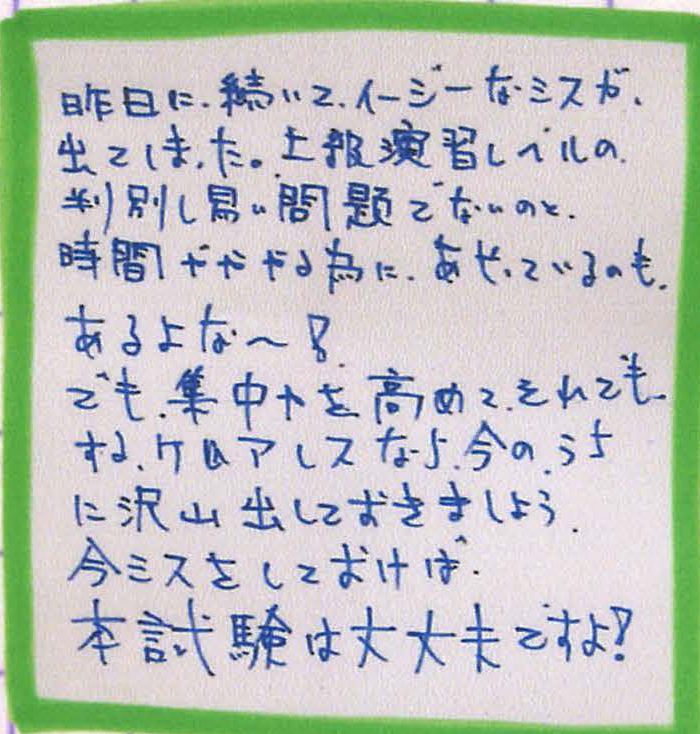 昨日に、続いて、イージーなミスが、
出てしました。上級演習レベルの
判別し易い問題でないのと、
時間ややる為に、あせっているのも、
あるよな〜!
でも、集中力を高めて、それでも、
する、ケアレスなら、今のうち
に沢山出しておきましょう。
今ミスをしておけば、
本試験は大丈夫ですよ!